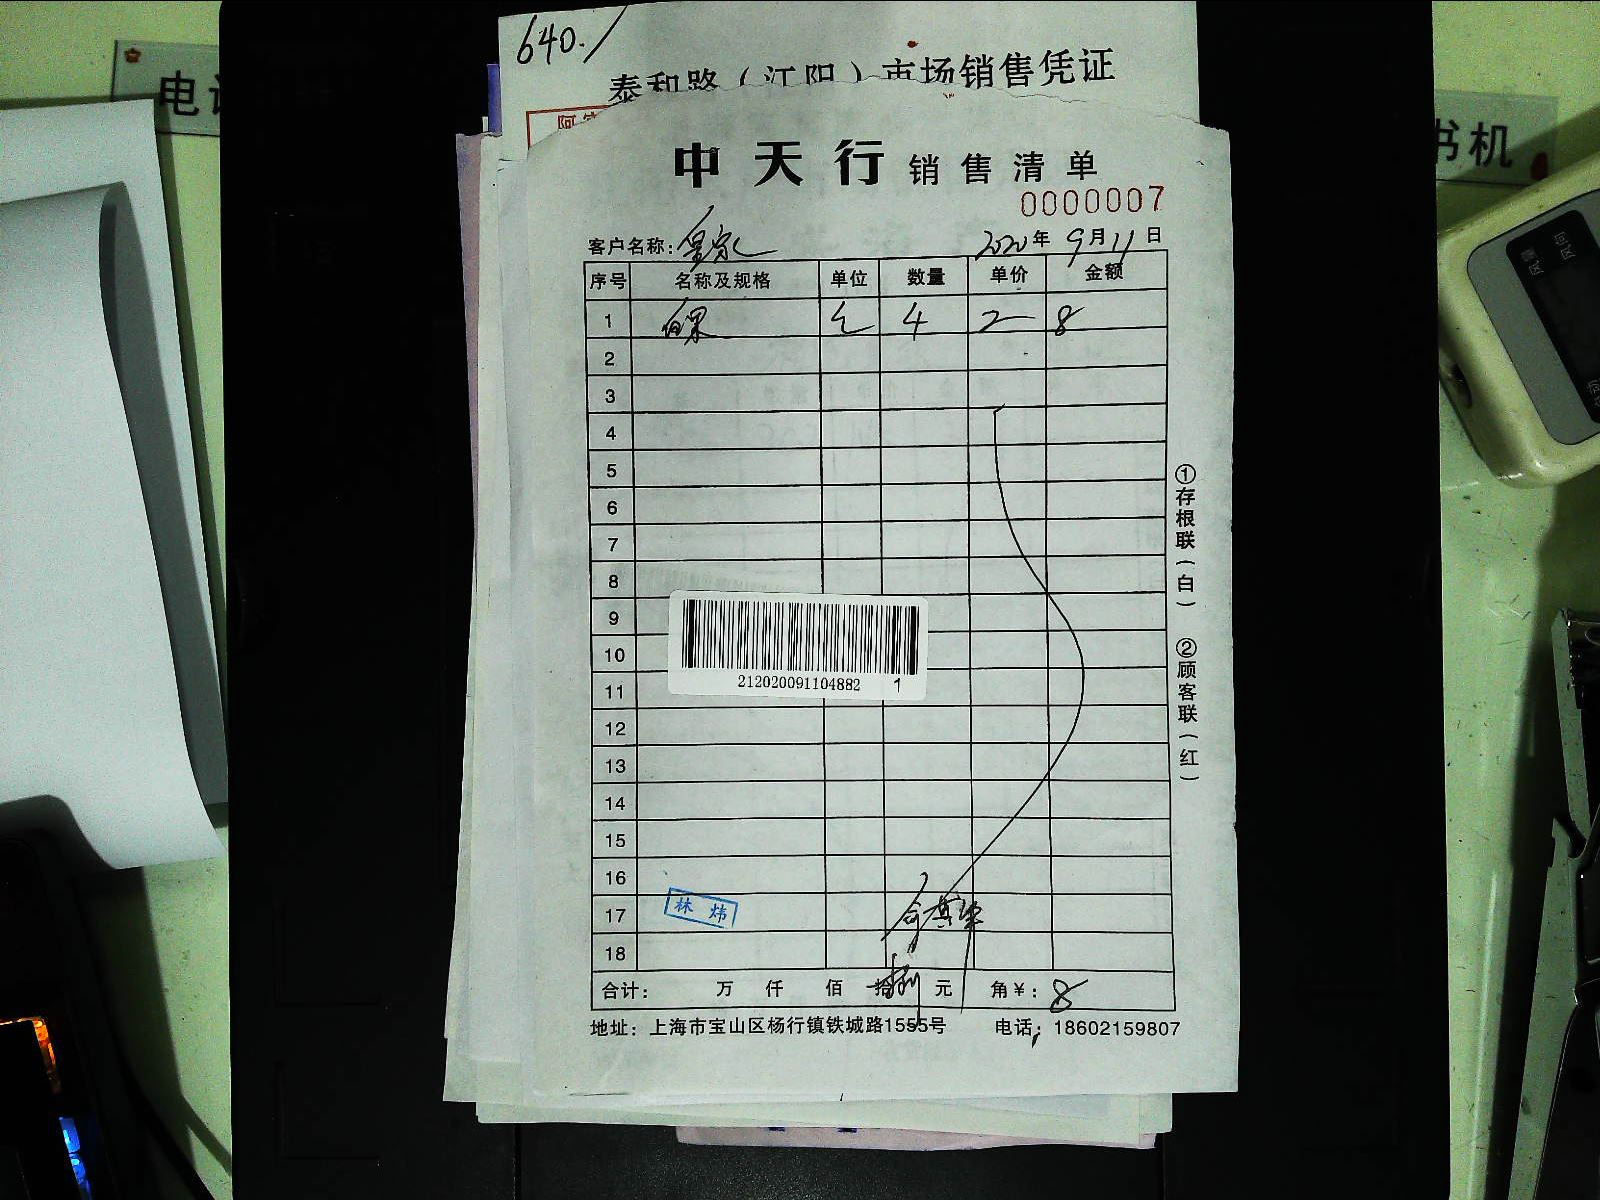 640.
泰和路（江阳）市场销售凭证
中天行 销售清单
0000007
客户名称： 2020年9月11日
序号 名称及规格 单位 数量 单价 金额
1 白果 4 2 8
2
3
4
5
6
7
8
9
10
11
12
13
14
15
16
17
18
212020091104882 1
林炜
合计： 万 仟 佰 拾捌元 角￥：8
地址：上海市宝山区杨行镇铁城路1555号 电话：18602159807
①存根联（白） ②顾客联（红）
书机